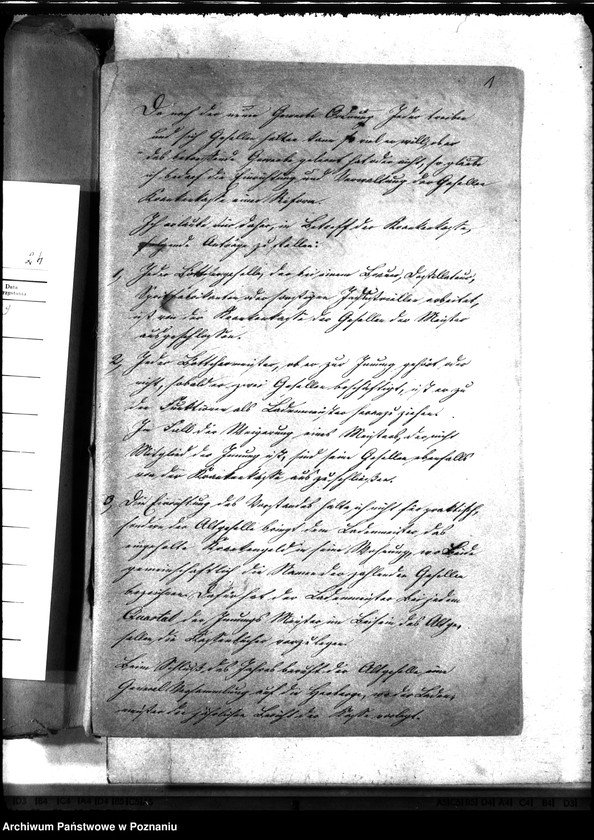 1
Da nach der neuen Gewerbe Ordnung Jeder treiben
und sich Gesellen halten kann so viel er will, ob er
das betreffende Gewerbe gelernt hat oder nicht, so glaube
ich bedarf die Einrichtung und Verwaltung der Gesellen
Krankenkasse einer Reform.
Ich erlaube mir daher, in Betreff der Krankenkasse,
folgende Anträge zu stellen:
1, Jeder Böttchergeselle, der bei einem Brauer, Destillateur,
Spritfabrikanten oder sonstigen Industriellen arbeitet,
ist von der Krankenkasse der Gesellen der Meister
ausgeschlossen.
2, Jeder Böttchermeister, ob er zur Innung gehört oder
nicht, sobald er zwei Gesellen beschäftigt, ist er zu
den Funktionen als Ladenmeister heranzuziehen.
Im Fall der Weigerung eines Meisters, der nicht
Mitglied der Innung ist, sind seine Gesellen ebenfalls
von der Krankenkasse auszuschließen.
3, Die Einrichtung des Vorstandes halte ich nicht für praktisch,
sondern der Altgeselle bringt dem Ladenmeister das
eingeholte Krankengeld in seine Wohnung, wo Beide
gemeinschaftlich die Namen der zahlenden Gesellen
bezeichnen. Dafür hat der Ladenmeister bei jedem
Quartal der Innungs Meister im Beisein des Altge-
sellen die Kassenbücher vorzulegen.
Beim Schluß des Jahres beruft der Altgeselle eine
General Versammlung auf die Herberge, wo der Laden-
meister den jährlichen Bericht der Kasse vorlegt.
24
Data
Archiwum Państwowe w Poznaniu